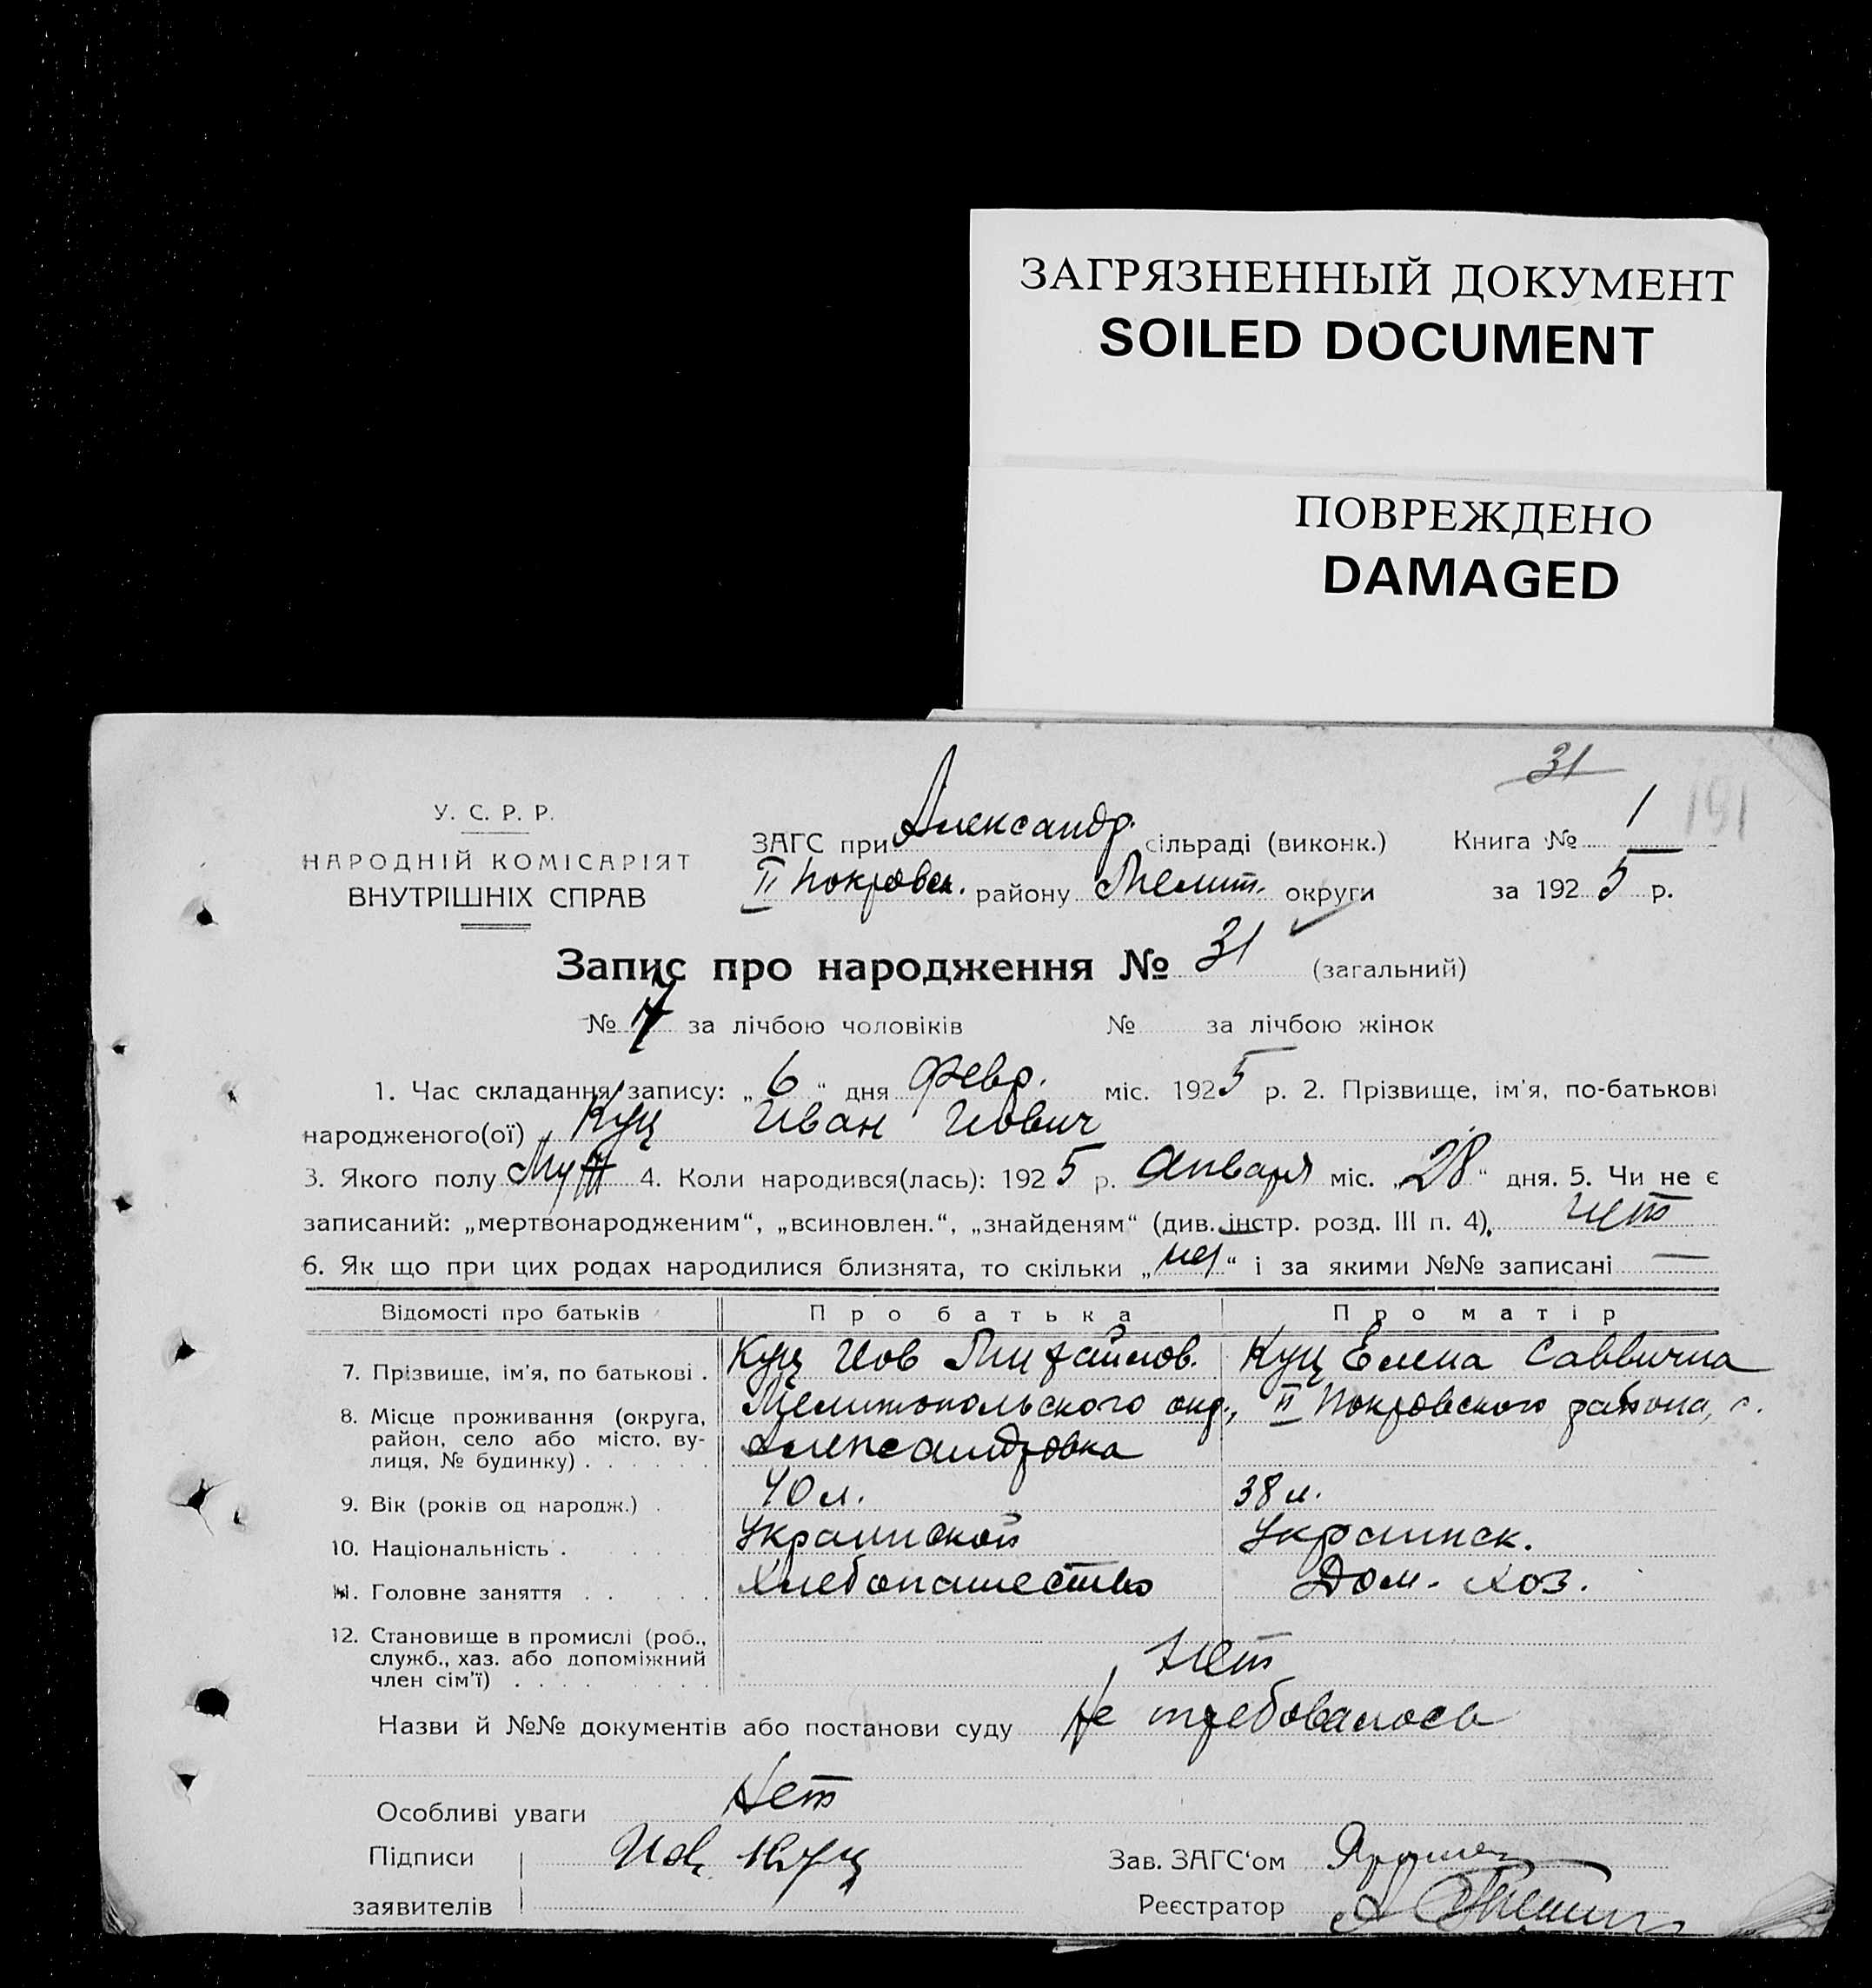 ЗАГРЯЗНЕННЫЙ ДОКУМЕНТ
SOILED DOCUMENT
ПОВРЕЖДЕНО
DAMAGED
31
191
У. С. Р. Р.
НАРОДНІЙ КОМІСАРІЯТ
ВНУТРІШНІХ СПРАВ
ЗАГС при Александр. сільраді (виконк.) Книга № 1
II Покровск. району Мелит. округи за 1925 р.
Запис про народження № 31 (загальний)
№ за лічбою чоловіків № за лічбою жінок
1. Час складання запису: „6“ дня Февр. міс. 1925 р. 2. Прізвище, ім'я, по-батькові
народженого(ої) Куц Иван Иович
3. Якого полу Муж 4. Коли народився(лась): 1925 р. Января міс. „28“ дня. 5. Чи не є
записаний: „мертвонародженим“, „всиновлен.“, „знайденям“ (див. інстр. розд. III п. 4). нет
6. Як що при цих родах народилися близнята, то скільки „нет“ і за якими №№ записані —
Відомості про батьків Про батька Про матір
7. Прізвище, ім'я, по батькові . Куц Иов Михайлов. Куц Елена Саввична
8. Місце проживання (округа, район, село або місто, вулиця, № будинку) . Мелитопольского окр., II Покровского района, с.
Александровка
9. Вік (років од народж.) . 40 л. 38 л.
10. Національність . Украинской Украинск.
11. Головне заняття . . Хлебопашество Дом. хоз.
12. Становище в промислі (роб.,
служб., хаз. або допоміжний
член сім'ї) . . . . Нет
Назви й №№ документів або постанови суду Не требовалось
Особливі уваги Нет
Підписи Иов Куц Зав. ЗАГС'ом
заявителів Реєстратор